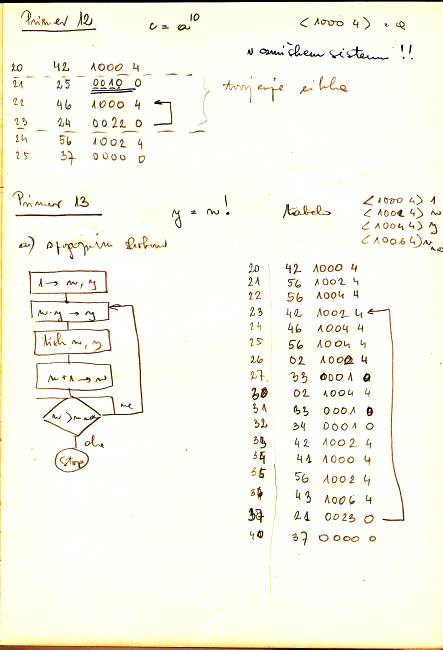 Primer 12 c = a¹⁰ <1000 4> = a
v osmiškem sistemu !!
20 42 1000 4
21 25 0010 0
22 46 1000 4
23 24 0022 0
24 56 1002 4
25 37 0000 0
trajanje cikla
Primer 13 y = n! tabela
<1000 4> 1
<1002 4> n
<1004 4> y
<1006 4> n max
a)
1 → n, y
n·y → y
tisk n, y
n+1 → n
n > n max
ne
da
Stop
20 42 1000 4
21 56 1002 4
22 56 1004 4
23 42 1002 4
24 46 1004 4
25 56 1004 4
26 02 1002 4
27 33 0001 0
30 02 1004 4
31 33 0001 0
32 34 0001 0
33 42 1002 4
34 41 1000 4
35 56 1002 4
36 43 1006 4
37 21 0023 0
40 37 0000 0